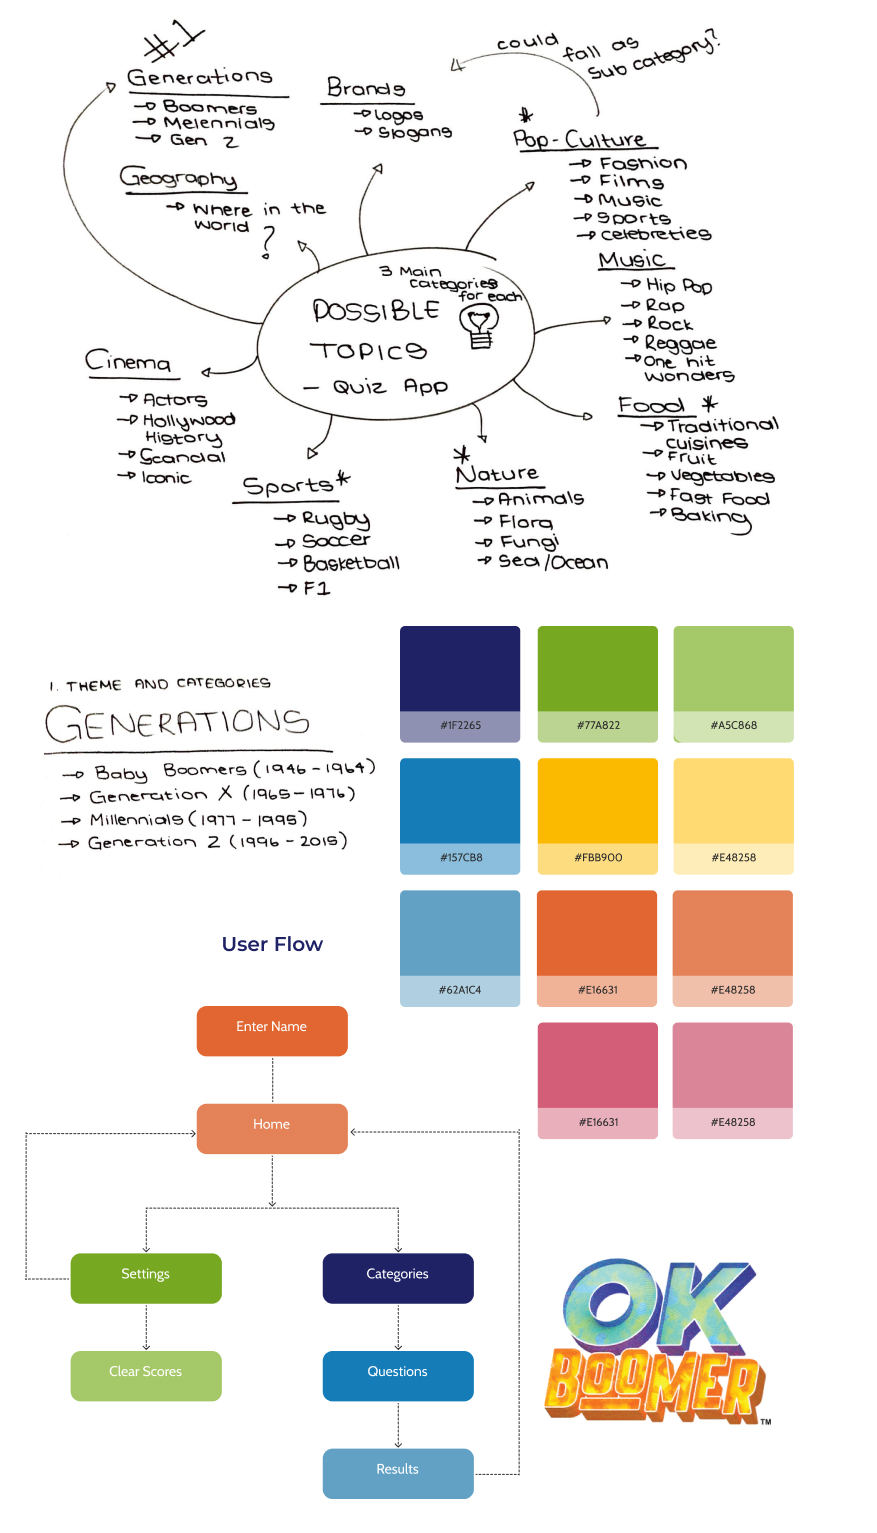 #1
could
fall as
sub category?
Generations
Boomers
Melennials
Gen Z
Brands
Logos
Slogans
*
Pop-Culture
Fashion
Films
Music
Sports
celebreties
Geography
Where in the
world
?
3 Main
categories
for each
POSSIBLE
TOPICS
- Quiz App
Music
Hip Pop
Rap
Rock
Reggae
One hit
wonders
Cinema
Actors
Hollywood
History
Scandal
Iconic
Food *
Traditional
cuisines
Fruit
Vegetables
Fast Food
Baking
Sports*
Rugby
Soccer
Basketball
F1
*
Nature
Animals
Flora
Fungi
Sea/Ocean
1. THEME AND CATEGORIES
GENERATIONS
Baby Boomers (1946-1964)
Generation X (1965-1976)
Millennials (1977-1995)
Generation Z (1996-2015)
#1F2265
#77A822
#A5C868
#157CB8
#FBB900
#E48258
#62A1C4
#E16631
#E48258
#E16631
#E48258
User Flow
Enter Name
Home
Settings
Categories
Clear Scores
Questions
Results
OK
BOOMER
TM